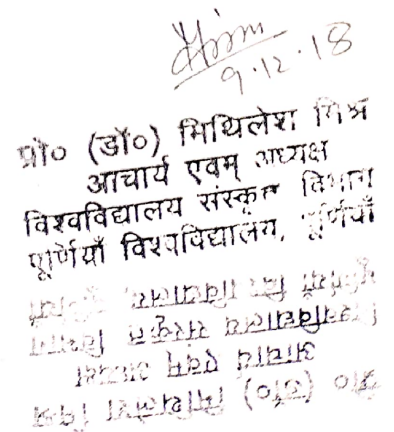 9.12.18
प्रो० (डॉ०) मिथिलेश मिश्र
आचार्य एवम् अध्यक्ष
विश्वविद्यालय संस्कृत विभाग
पूर्णियाँ विश्वविद्यालय, पूर्णियाँ